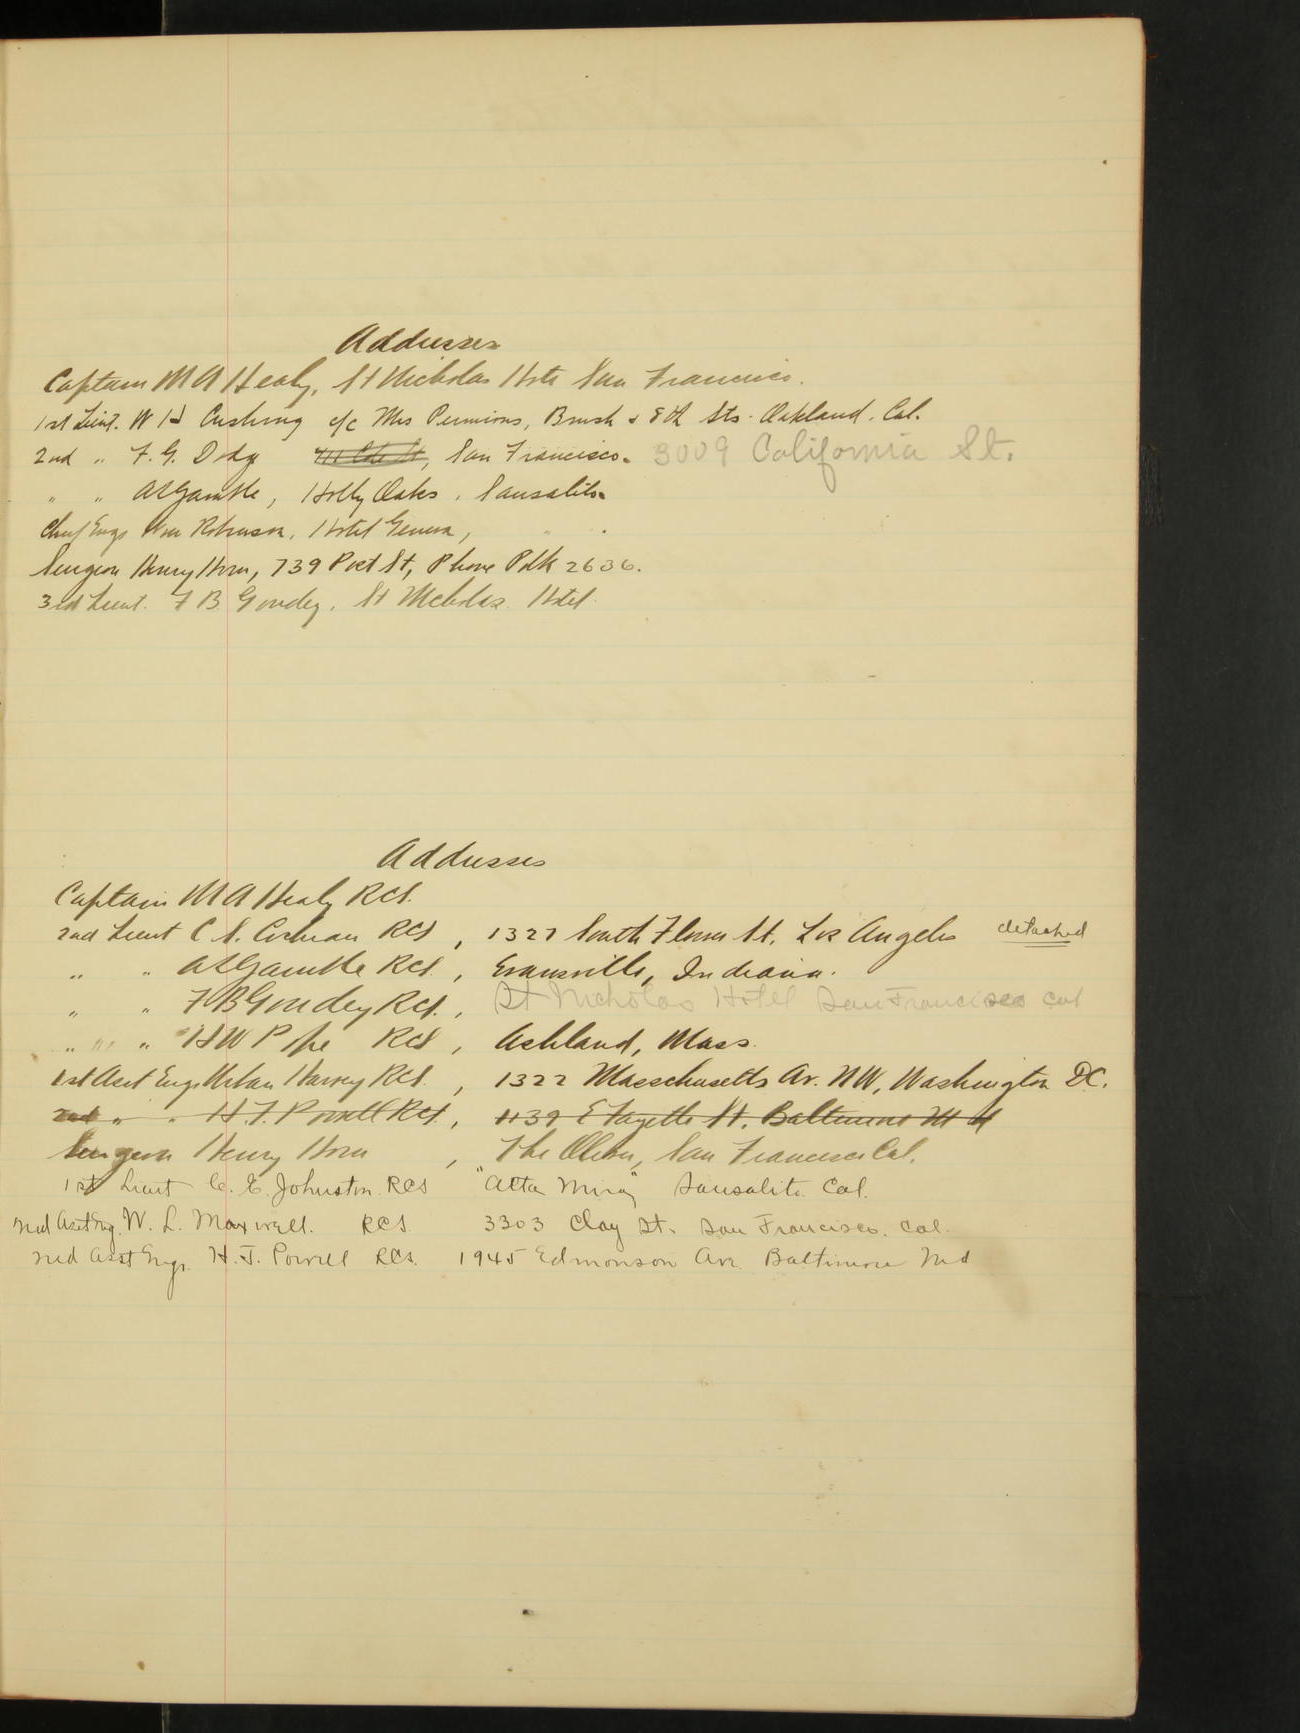 Addresses
Captain M A Healy, St Nicholas Hotel San Francisco.
1st Lieut. W H Cushing c/c Mrs Bush & 8th Sts. Oakland. Cal.
2nd " F. G. Dodge San Francisco. 3009 California St.
" " A L Gamble, Holly Oaks, Sausalito
Chief Engr Wm Robinson, Hotel Geneva, " .
Surgeon Henry Horn, 739 Post St, Phone Polk 2636.
3rd Lieut. F B Goudey, St Nicholas Hotel.
Addresses
Captain M A Healy RCS.
2nd Lieut C S. Cochran RCS, 1327 South Flower St. Los Angeles detached
" " A L Gamble RCS., Evansville, Indiana.
" " F B Goudey RCS., St Nicholas Hotel San Francisco Cal
" " H W Pope RCS, Ashland, Mass.
1st Asst Engr Urban Harvey RCS., 1322 Massachusetts Av. NW, Washington DC.
2nd " " H. F. Powell RCS., 1139 E Fayette St. Baltimore Md
Surgeon Henry Horn, The San Francisco Cal.
1st Lieut C. E. Johnston RCS "Alta Mira" Sausalito Cal.
2nd Asst Eng. W. L. Maxwell. RCS 3303 Clay St. San Francisco. Cal.
2nd Asst Engr. H. F. Powell RCS. 1945 Edmonson Ave Baltimore Md